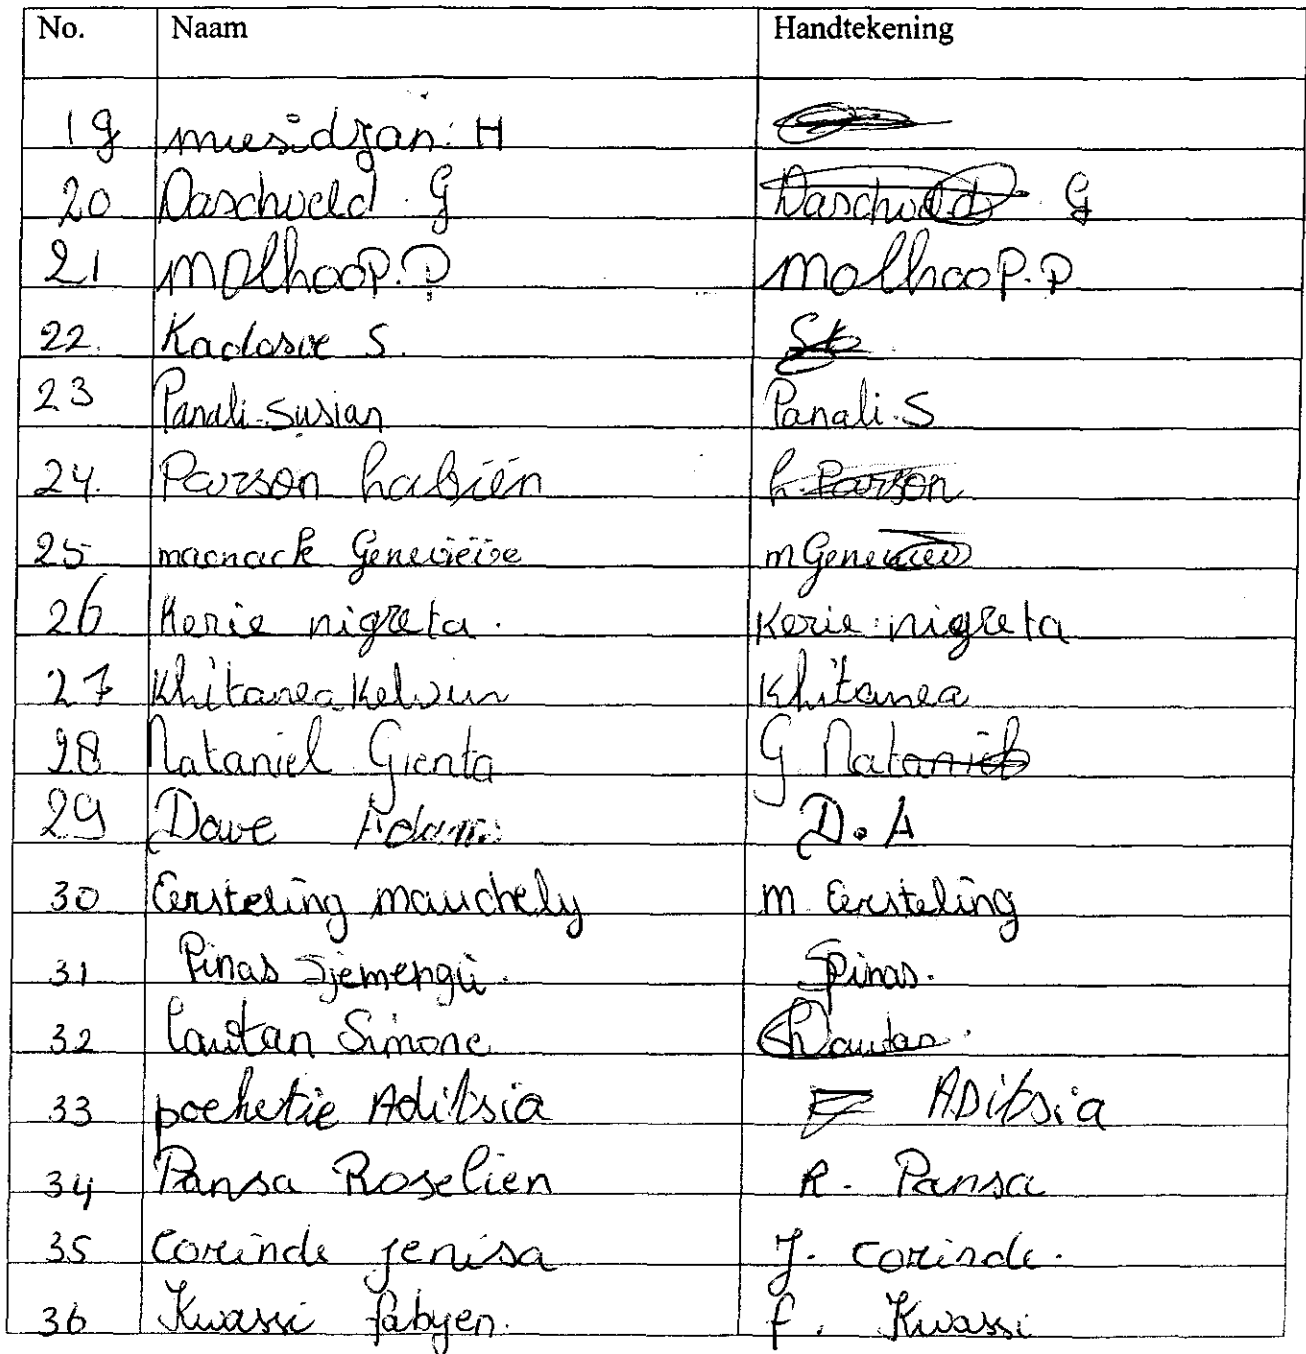 No. Naam Handtekening
19 musidjan. H
20 Daschveld. G Daschveld G
21 Molhoop. P Molhoop. P
22. Kadosoe S.
23 Panali-Susian Panali. S
24. Parson habiën h. Parson
25 macnack Genevieive m Genevieve
26 Kerie nigreta. Kerie nigreta
27 Khitanea Kelvin Khitanea
28 Nataniel Gienta G Nataniel
29 Dave Adams D. A
30 Eersteling mauchely m Eersteling
31 Pinas Sjemengü. S Pinas.
32 Lautan Simone S Lautan.
33 poeketie Aditsia ADitsia
34 Pansa Roselien R. Pansa
35 Corinde jenisa J. corinde.
36 Kwassi fabyen. f. Kwassi